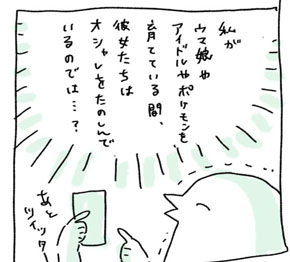 私が
ウマ娘や
アイドルやポケモンを
育てている間、
彼女たちは
オシャレをたのしんで
いるのでは…?
あと
ツイッター